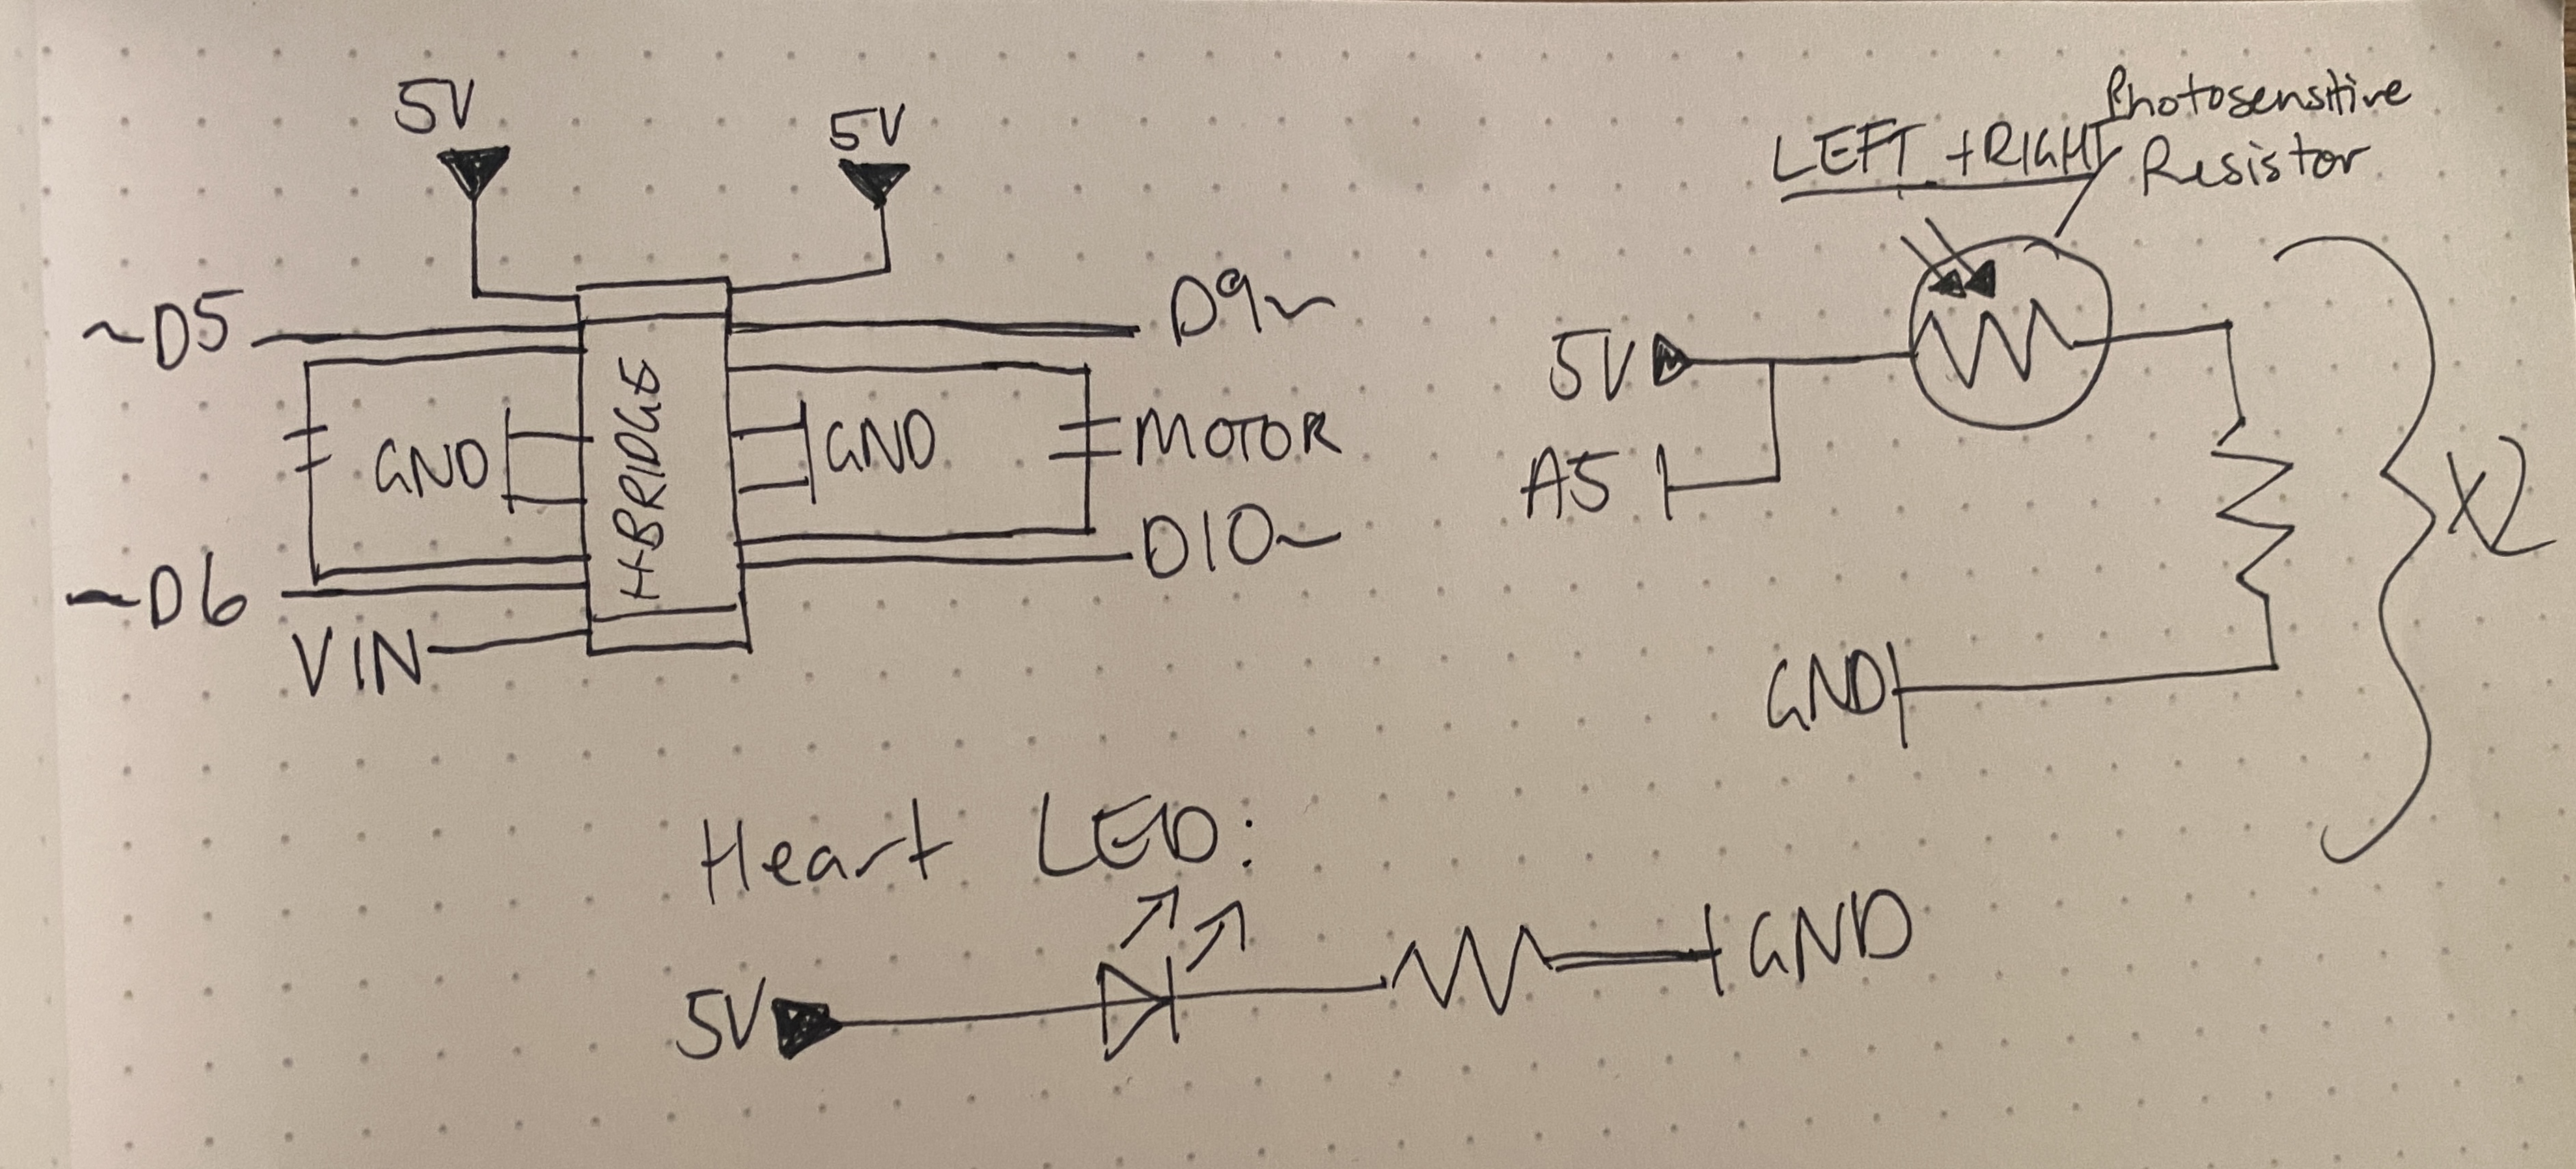 5V
5V
~D5
D9~
GND
H-BRIDGE
GND
MOTOR
~D6
D10~
VIN
LEFT + RIGHT
Photosensitive
Resistor
5V
A5
GND
X2
Heart LED:
5V
GND